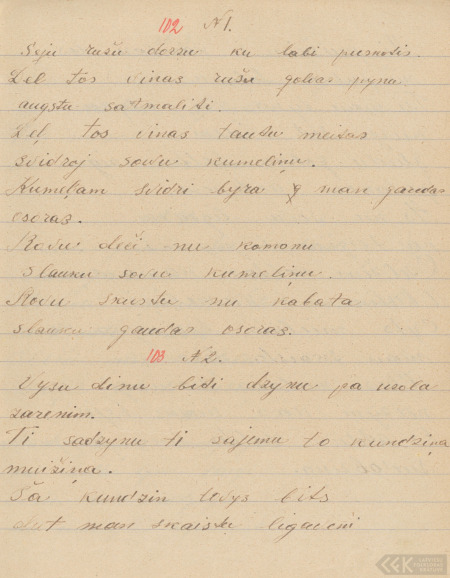 102 N1.
Seju rušu dorzu ku labi pusnotis.
Deļ tos vinas rušu golvas pynu
augstu satmaliti.
Deļ tos vinas tautu meitas
svidroj sovu kumeliņu.
Kumeļam svidri byra man gaudas
osoras.
Rovu deči nu komonu
slauku sovu kumeliņu.
Rovu skustu nu kabata
slauku gaudas osoras.
103 N2.
Vysu dinu biti dzynu pa uzola
zarenim.
Ti sadzynu ti sajemu to kundziņa
muižiņa.
Ša kundzin tevys bits
dut man skaistu ligaveni